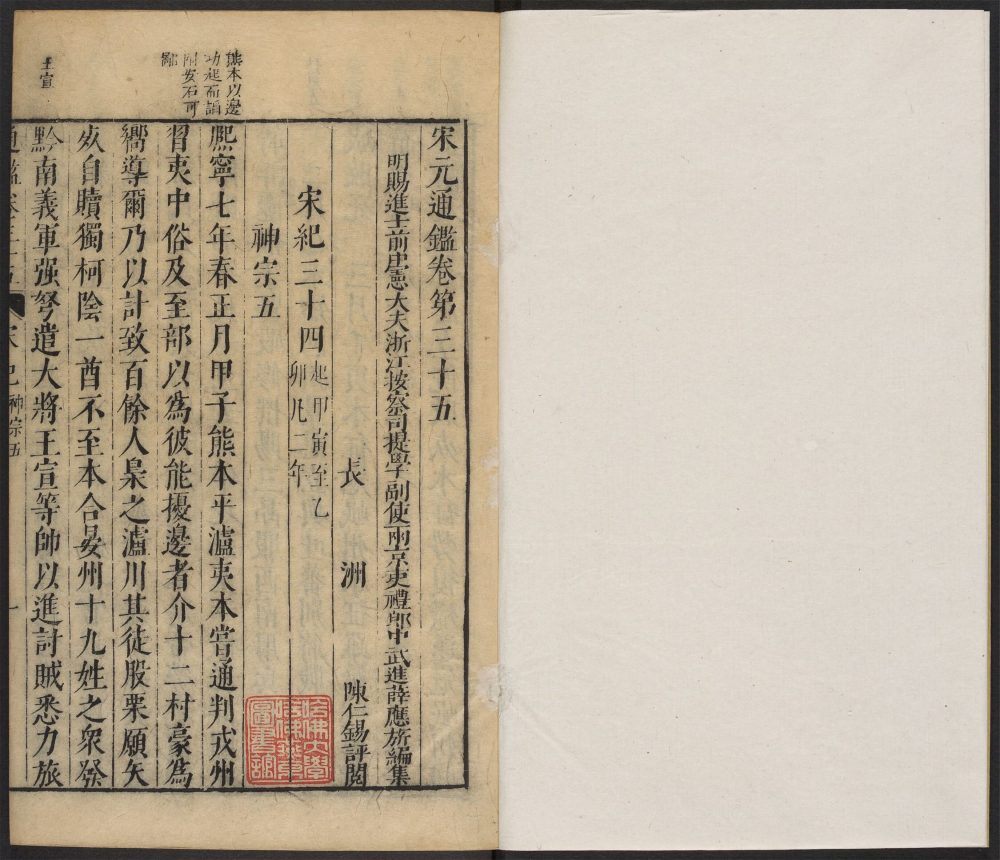 宋元通鑑卷第三十五
明賜進士前中憲大夫浙江按察司提學副使兩京吏禮郎中武進薛應旂編集
長洲 陳仁錫評閱
宋紀三十四 起甲寅至乙卯凡二年
神宗五
熊本以邊
功起而諂
附安石可
鄙
熙寧七年春正月甲子熊本平瀘夷本嘗通判戎州
習夷中俗及至部以為彼能擾邊者介十二村豪為
嚮導爾乃以計致百餘人梟之瀘川其徒股栗願矢
死自贖獨柯陰一酋不至本合晏州十九姓之眾發
黔南義軍强弩遣大將王宣等帥以進討賊悉力旅
王宣
通鑑卷三十五 宋紀 神宗五 一
哈佛大學
漢和圖書館